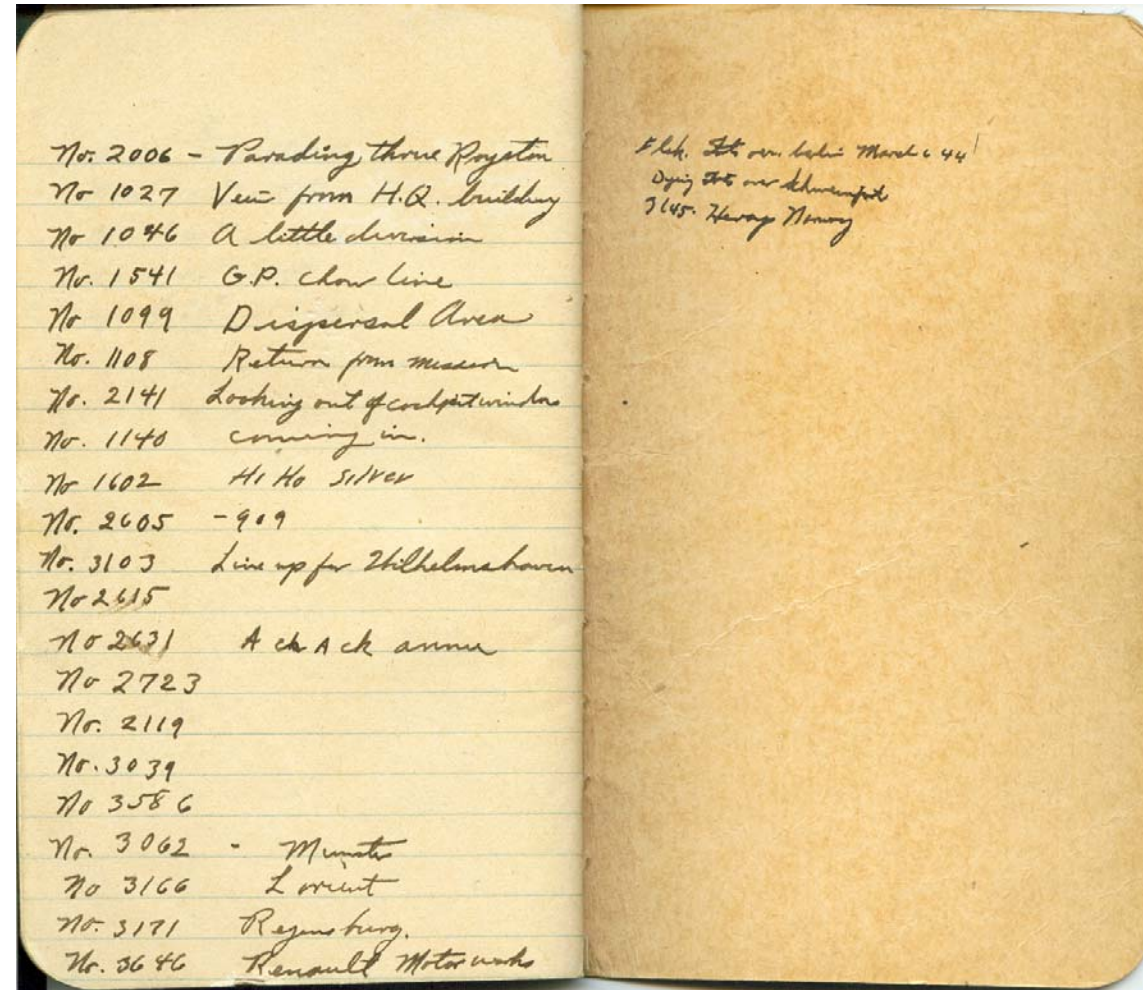 No. 2006 - Parading thrue Royston
No 1027 Veiw from H.Q. building
No 1046 A little diversion
No. 1541 G.P. chow line
No 1099 Dispersal Area
No. 1108 Return from mission
No. 2141 Looking out of cockpit window
No. 1140 coming in.
No 1602 Hi Ho Silver
No. 2605 - 909
No. 3103 Line up for Wilhelmshaven
No 2615
No 2631 Ack Ack annie
No 2723
No. 2119
No. 3039
No 3586
No. 3062 - Munster
No 3166 Lorient
No. 3171 Regensburg.
No. 3646 Renault Motor works
Flak. over. March 6 44
Dying over Schweinfurt
3145. Norway